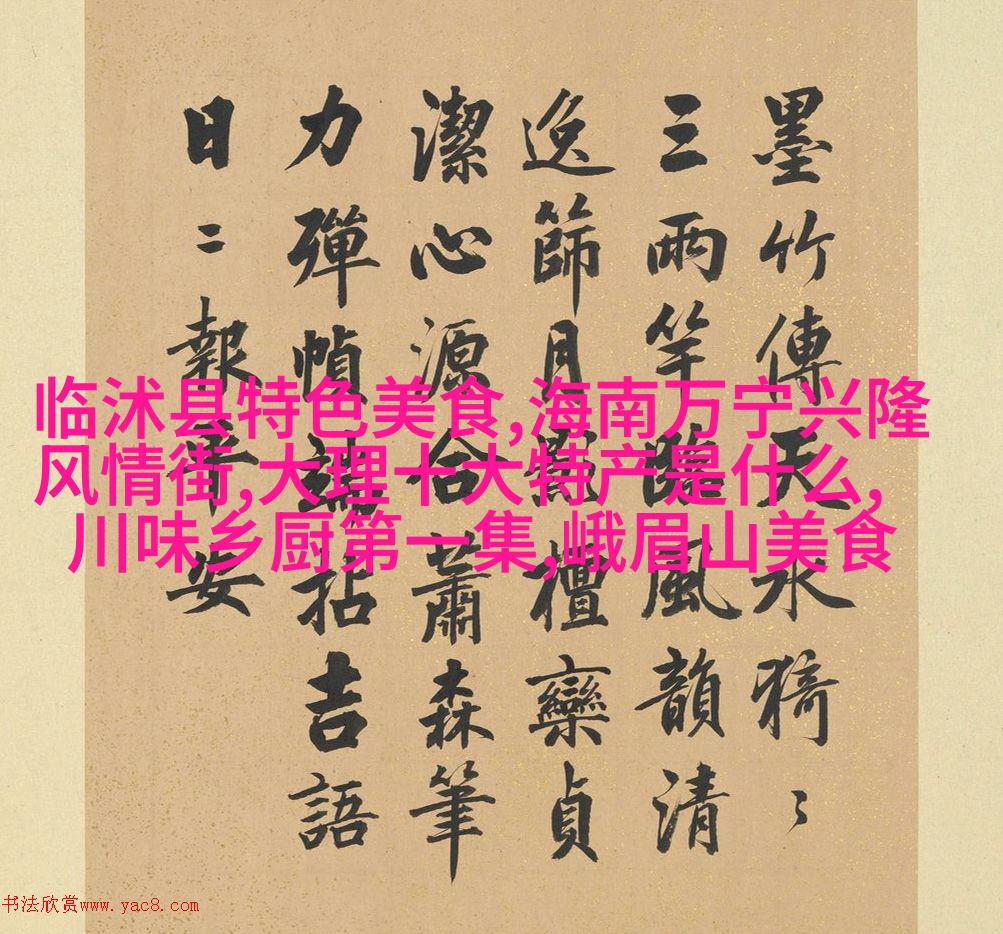 墨竹傳天水猗〻
三兩竿風韻清
逸篩月檀欒貞
潔心源合蕭森筆
力彈幀端拈吉語
日二報平安
临沭县特色美食,海南万宁兴隆
风情街,大理十大特产是什么,
川味乡厨第一集,峨眉山美食
书法欣赏www.yac8.com